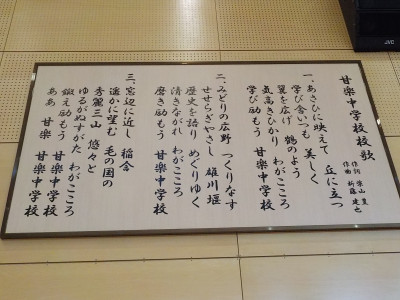 甘楽中学校校歌
作詞 栗山 豊
作曲 斉藤 建也
一、あさひに映えて 丘に立つ
学び舎いつも 美しく
翼を広げ 鶴のよう
気高きひかり わがこころ
学び励もう 甘楽中学校
二、みどりの広野 つくりなす
せせらぎやさし 雄川堰
歴史を語り めぐりゆく
清きながれ わがこころ
磨き励もう 甘楽中学校
三、窓辺に近し 稲含
遥かに望む 毛の国の
秀麗三山 悠々と
ゆるがぬすがた わがこころ
鍛え励もう 甘楽中学校
ああ 甘楽 甘楽中学校
JVC